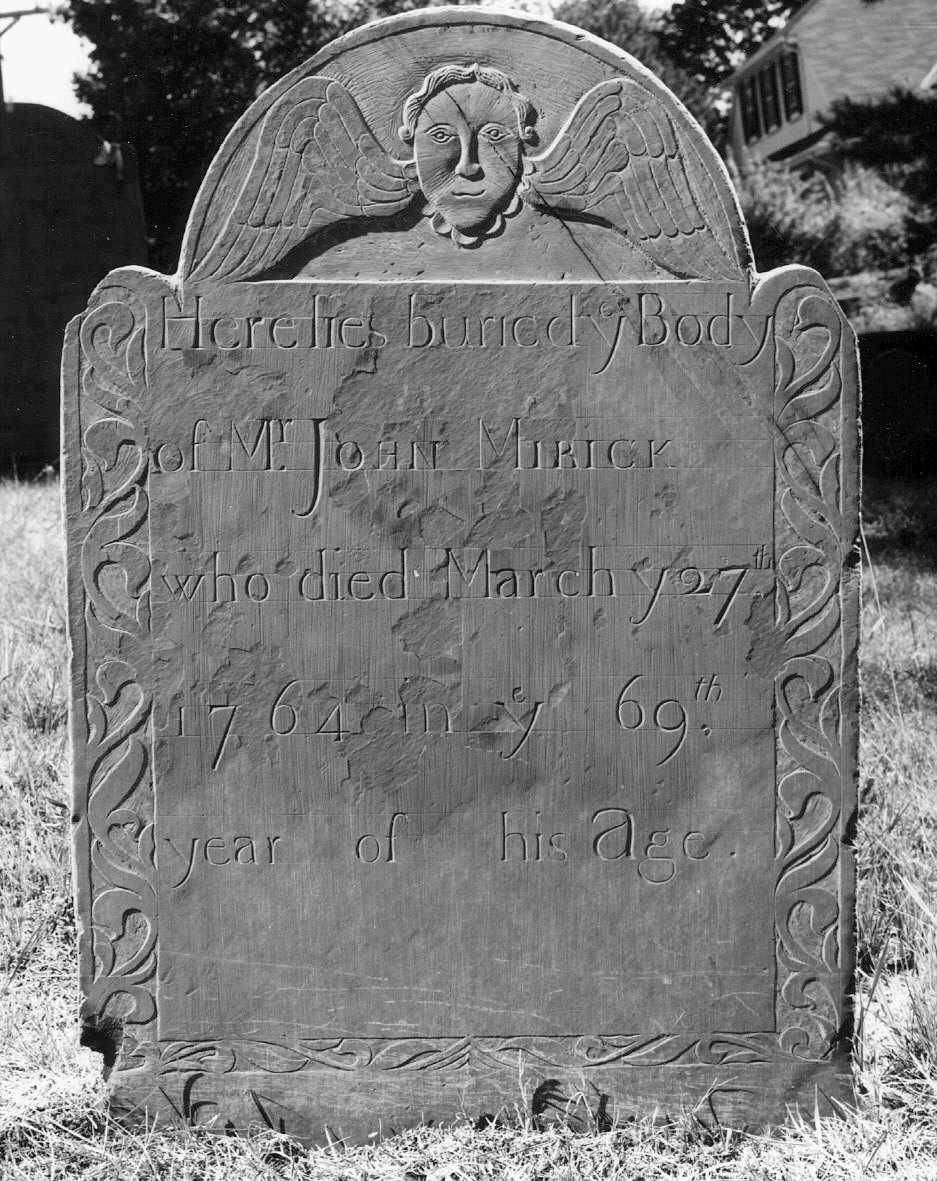 Here lies buried yᵉ Body
of Mʳ. John Mirick
who died March y 27ᵗʰ.
1764 in yᵉ 69ᵗʰ.
year of his Age.